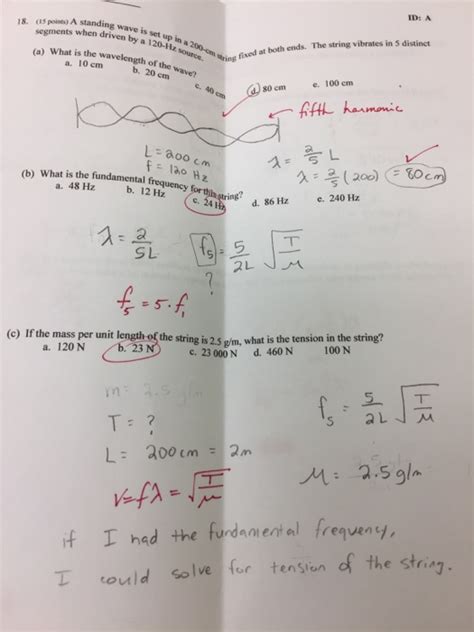 ID: A
18. (15 points) A standing wave is set up in a 200-cm string fixed at both ends. The string vibrates in 5 distinct
segments when driven by a 120-Hz source.
(a) What is the wavelength of the wave?
a. 10 cm b. 20 cm c. 40 cm d. 80 cm e. 100 cm
fifth harmonic
L = 200 cm
f = 120 Hz
λ = 2/5 L
λ = 2/5 (200) = 80cm
(b) What is the fundamental frequency for this string?
a. 48 Hz b. 12 Hz c. 24 Hz d. 86 Hz e. 240 Hz
λ = 2/5L f₅ = 5/2L √T/μ
?
f₅ = 5·f₁
(c) If the mass per unit length of the string is 2.5 g/m, what is the tension in the string?
a. 120 N b. 23 N c. 23 000 N d. 460 N 100 N
m = 2.5 g/m
T = ?
f₅ = 5/2L √T/μ
L = 200 cm = 2m
μ = 2.5 g/m
v=fλ = √T/μ
if I had the fundamental frequency,
I could solve for tension of the string.